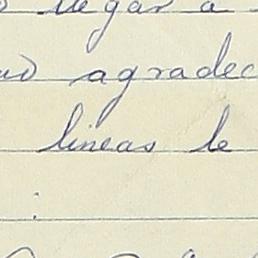 llegar a
agradec
lineas le
: